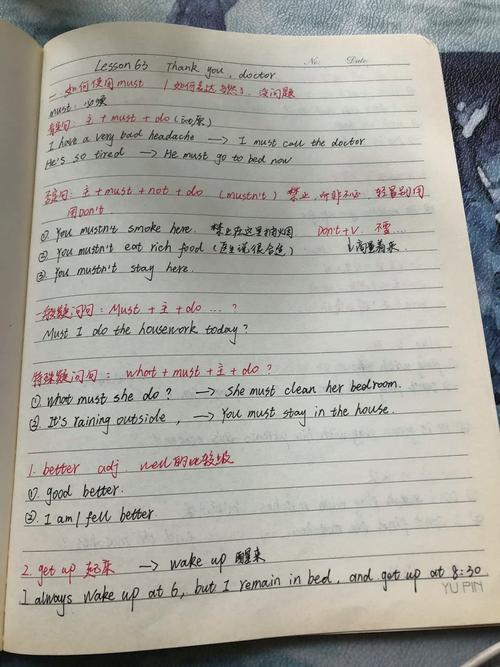 Lesson 63 Thank you, doctor
No: Date:
一. 如何使用must / 如何表达当然了, 没问题
must: 必须
肯定句: 主 + must + do (动原)
I have a very bad headache → I must call the doctor
He's so tired → He must go to bed now
否定句: 主 + must + not + do (mustn't) 禁止, 而非不必, 轻量别用
用Don't
① You mustn't smoke here. 禁止在这里抽烟 Don't + V 不要...
② You mustn't eat rich food (医生说很合适) ↓商量着来
③ You mustn't stay here.
一般疑问句: Must + 主 + do ... ?
Must I do the housework today?
特殊疑问句: what + must + 主 + do ?
① What must she do? → She must clean her bedroom.
② It's raining outside, → You must stay in the house.
1. better adj well的比较级
① good better.
② I am / fell better.
2. get up 起来 → wake up 醒来
I always wake up at 6, but I remain in bed, and get up at 8:30.
YU PIN